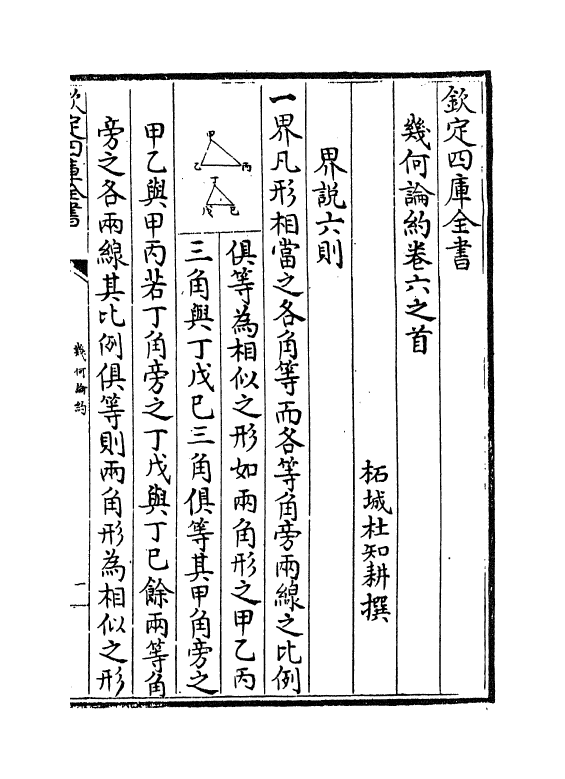 欽定四庫全書
幾何論約卷六之首
柘城杜知耕撰
界說六則
一界凡形相當之各角等而各等角旁兩線之比例
俱等為相似之形如兩角形之甲乙丙
三角與丁戊巳三角俱等其甲角旁之
甲乙與甲丙若丁角旁之丁戊與丁巳餘兩等角
旁之各兩線其比例俱等則兩角形為相似之形
甲
乙
丙
丁
戊
巳
欽定四庫全書
幾何論約
二